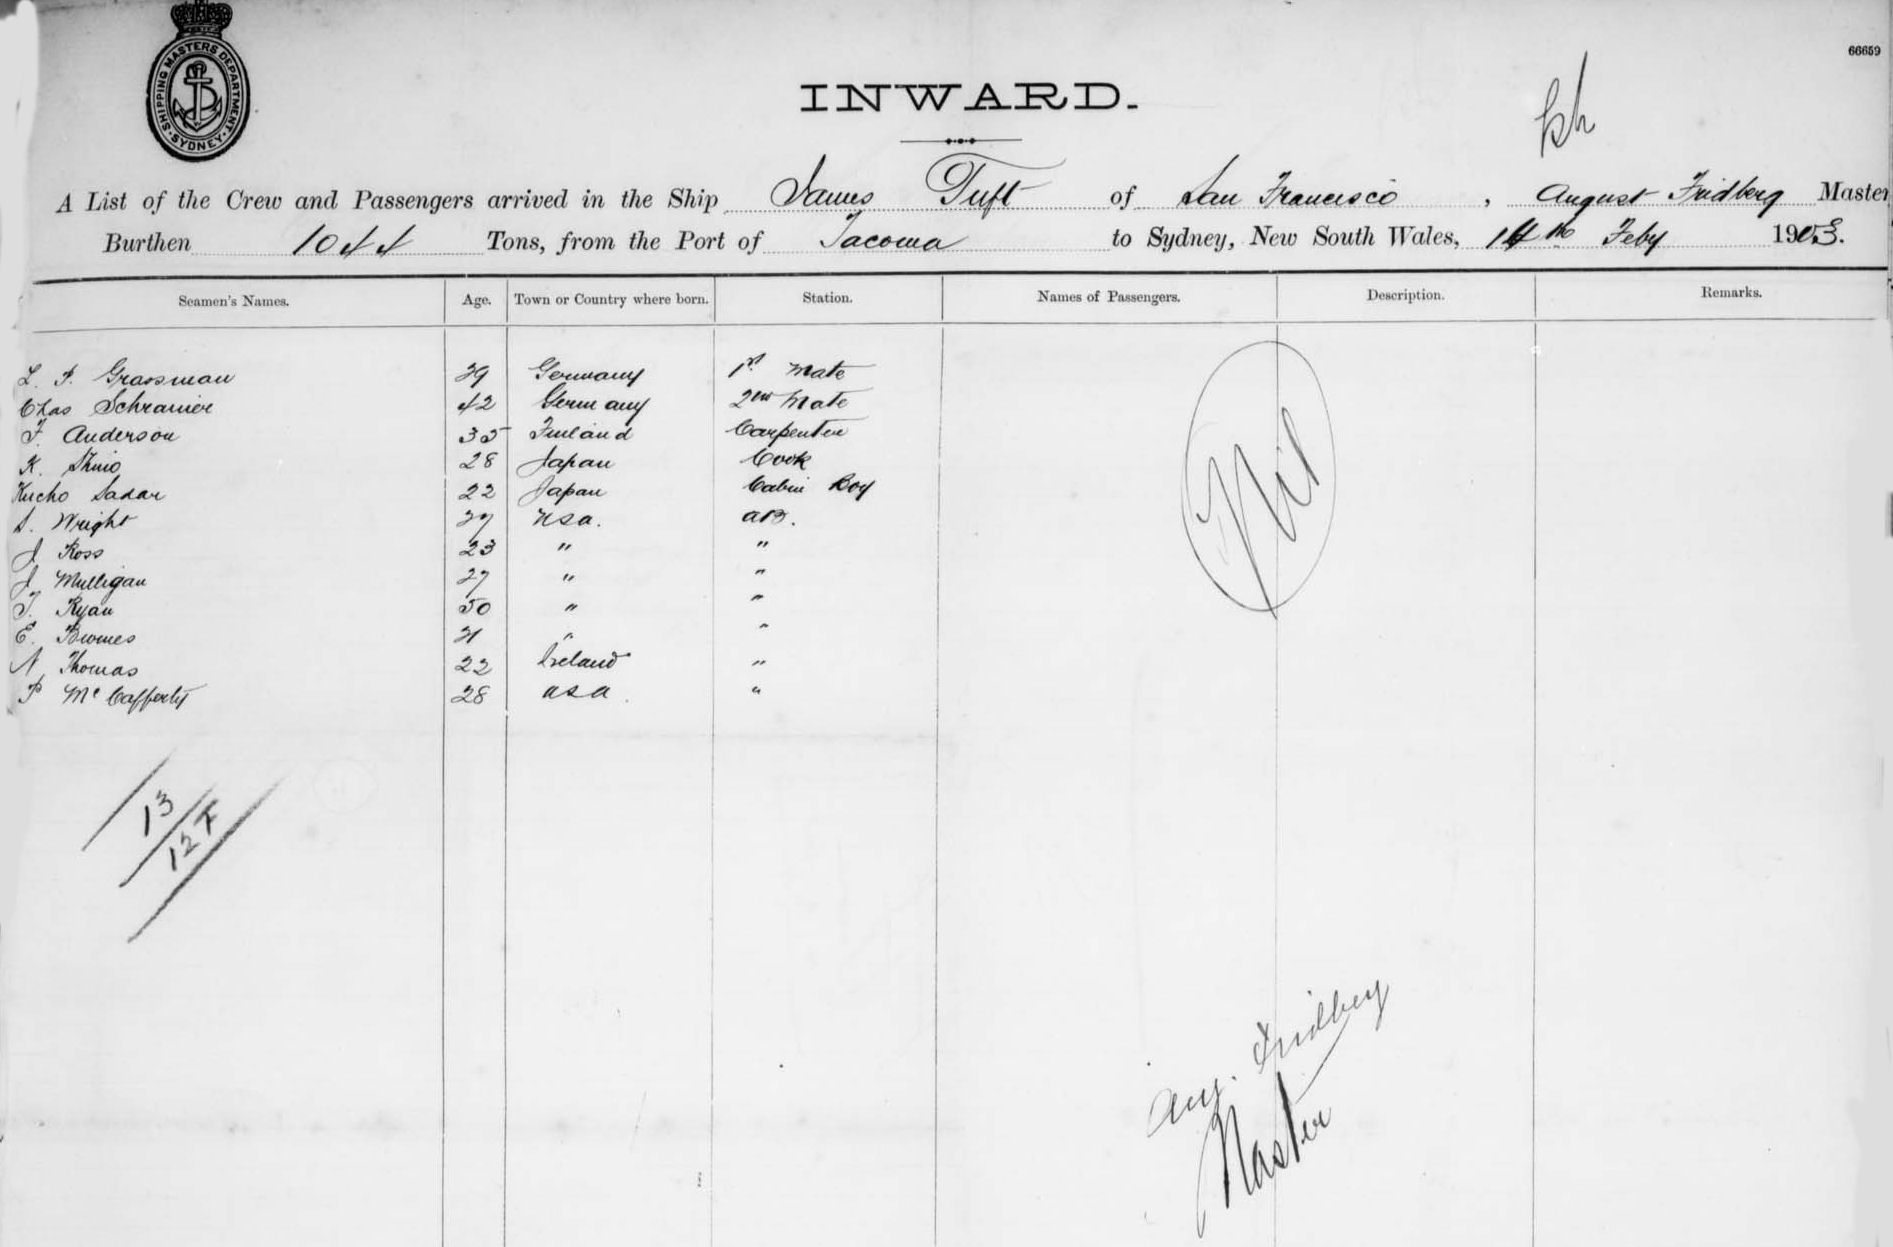 SHIPPING MASTERS DEPARTMENT. SYDNEY.
66659
INWARD.
A List of the Crew and Passengers arrived in the Ship James Tuft of San Francisco, August Fridberg Master
Burthen 1044 Tons, from the Port of Tacoma to Sydney, New South Wales, 14th Feby 1903.
Seamen's Names. Age. Town or Country where born. Station. Names of Passengers. Description. Remarks.
L. P. Grassman 39 Germany 1st Mate
Chas Schranier 42 Germany 2nd Mate
F. Anderson 35 Finland Carpenter
K. Shuio 28 Japan Cook
Kucho Sadar 22 Japan Cabin Boy
S. Wright 37 USA. AB.
J Ross 23 " "
J Mulligan 27 " "
T. Ryan 50 " "
E. 31 " "
N Thomas 22 Ireland "
P McCafferty 28 USA. "
Nil
13
12 F
Aug. Fridberg
Master